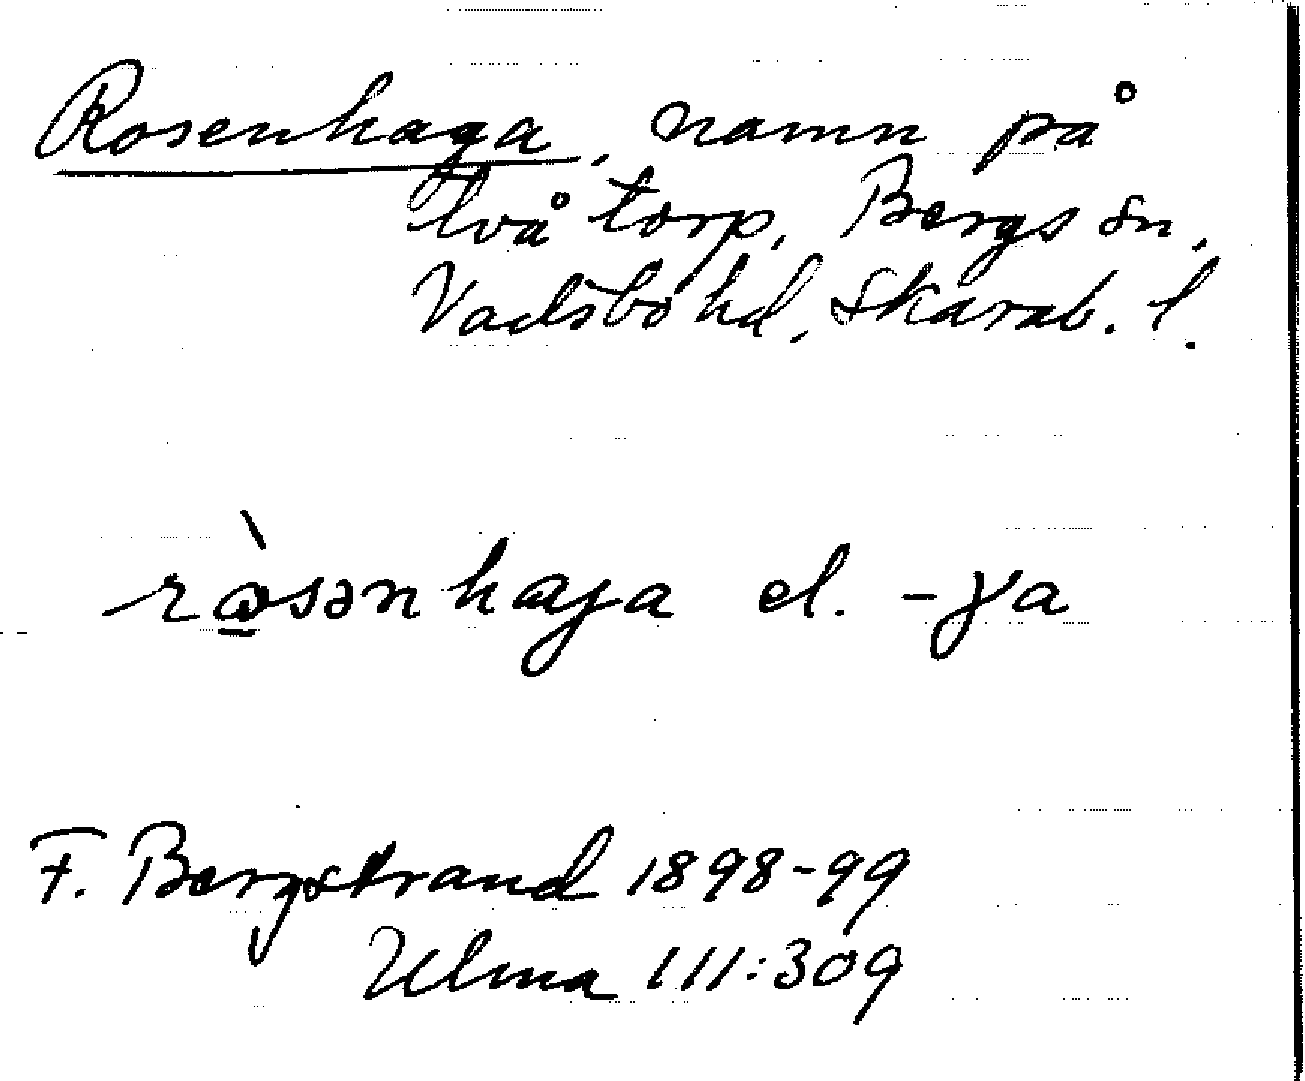 Rosenhaga, namn på
två torp, Bergs sn,
Vadsbo hd, Skarab. l.
rɷ̀sənhaγa el. -γa
F. Bergstrand 1898-99
Ulma 111:309